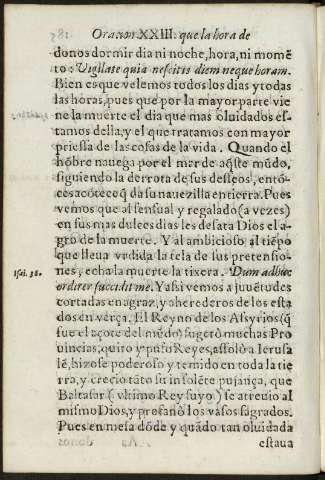 Oracion XXIII. que la hora de
donos dormir dia ni noche, hora, ni momẽ
to: Vigilate quia nescitis diem neque horam.
Bien es que velemos todos los dias y todas
las horas, pues que por la mayor parte vie
ne la muerte el dia que mas oluidados es-
tamos della, y el que tratamos con mayor
priessa de las cosas de la vida. Quando el
hõbre nauega por el mar de aq̃ste mũdo,
siguiendo la derrota de sus desseos, entõ-
ces acõtece q̃ da su nauezilla en tierra. Pues
vemos que al sensual y regalado (a vezes)
en sus mas dulces dias les desata Dios el a-
gro de la muerte. Y al ambicioso al tiẽpo
que lleua vrdida la tela de sus pretensio-
Isai. 38. nes, echa la muerte la tixera. Dum adhuc
ordirer succidit me. Y assi vemos a juuẽtudes
cortadas en agraz, y a herederos de los esta
dos en verça. El Reyno de los Assyrios (q̃
fue el açote del mũdo) sugetò muchas Pro
uincias, quitò y puso Reyes, assolò a Ierusa
lẽ, hizose poderoso y temido en toda la tie
rra, y crecio tãto su insolẽte pujança, que
Baltasar (vltimo Rey suyo) se atreuio al
mismo Dios, y profanò los vasos sagrados.
Pues en mesa dõde y quãdo tan oluidada
estaua